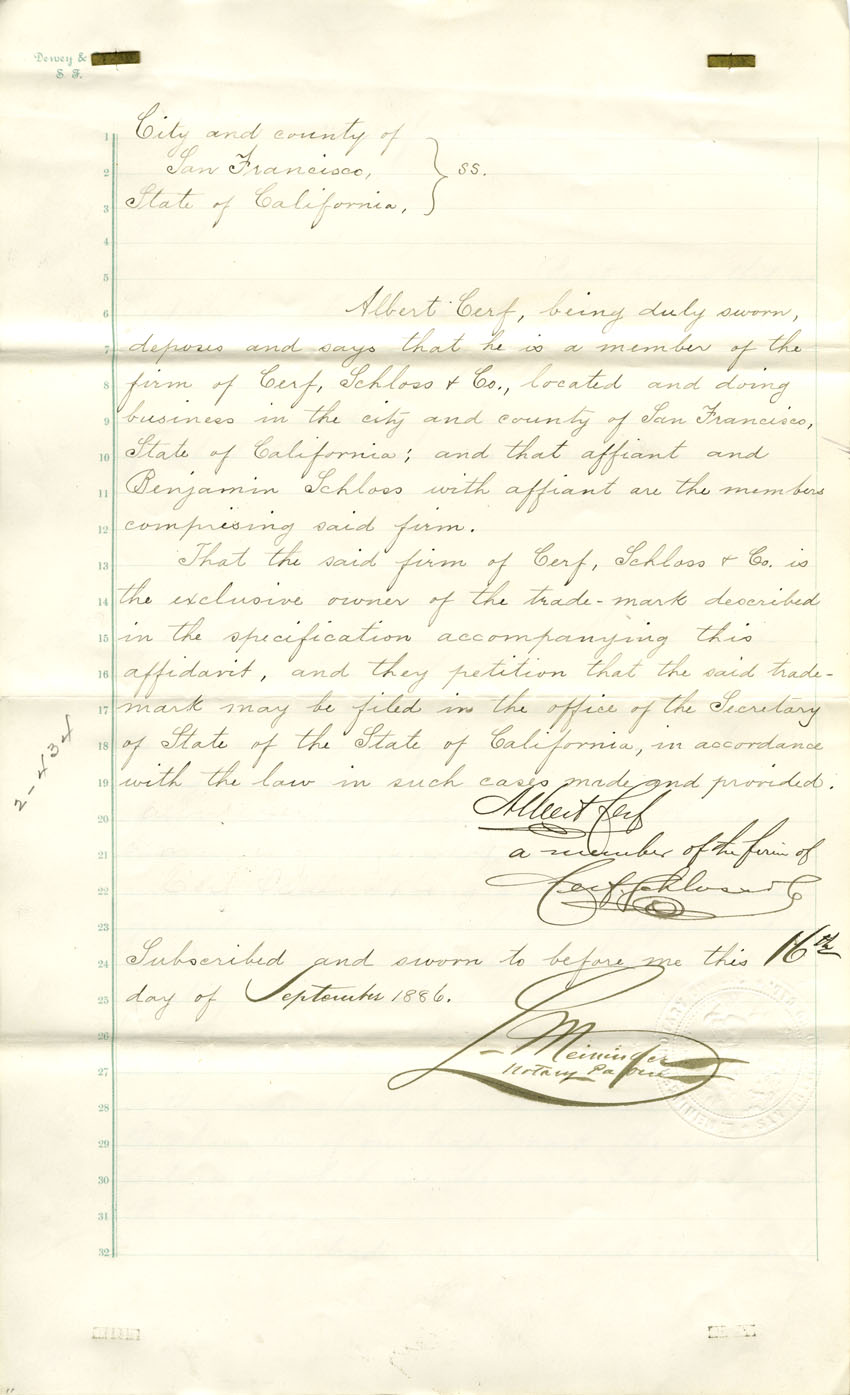 Dewey &
S. F.
1 City and county of
2 San Francisco, } ss.
3 State of California,
4
5
6 Albert Cerf, being duly sworn,
7 deposes and says that he is a member of the
8 firm of Cerf, Schloss & Co., located and doing
9 business in the city and county of San Francisco,
10 State of California; and that affiant and
11 Benjamin Schloss with affiant are the members
12 comprising said firm.
13 That the said firm of Cerf, Schloss & Co. is
14 the exclusive owner of the trade-mark described
15 in the specification accompanying this
16 affidavit, and they petition that the said trade-
17 mark may be filed in the office of the Secretary
18 of State of the State of California, in accordance
19 with the law in such cases made and provided.
2-434
20 Albert Cerf
21 a member of the firm of
22 Cerf, Schloss & Co
23
24 Subscribed and sworn to before me this 16th
25 day of September 1886.
26 L Meininger
27 Notary Public
28
29
30
31
32